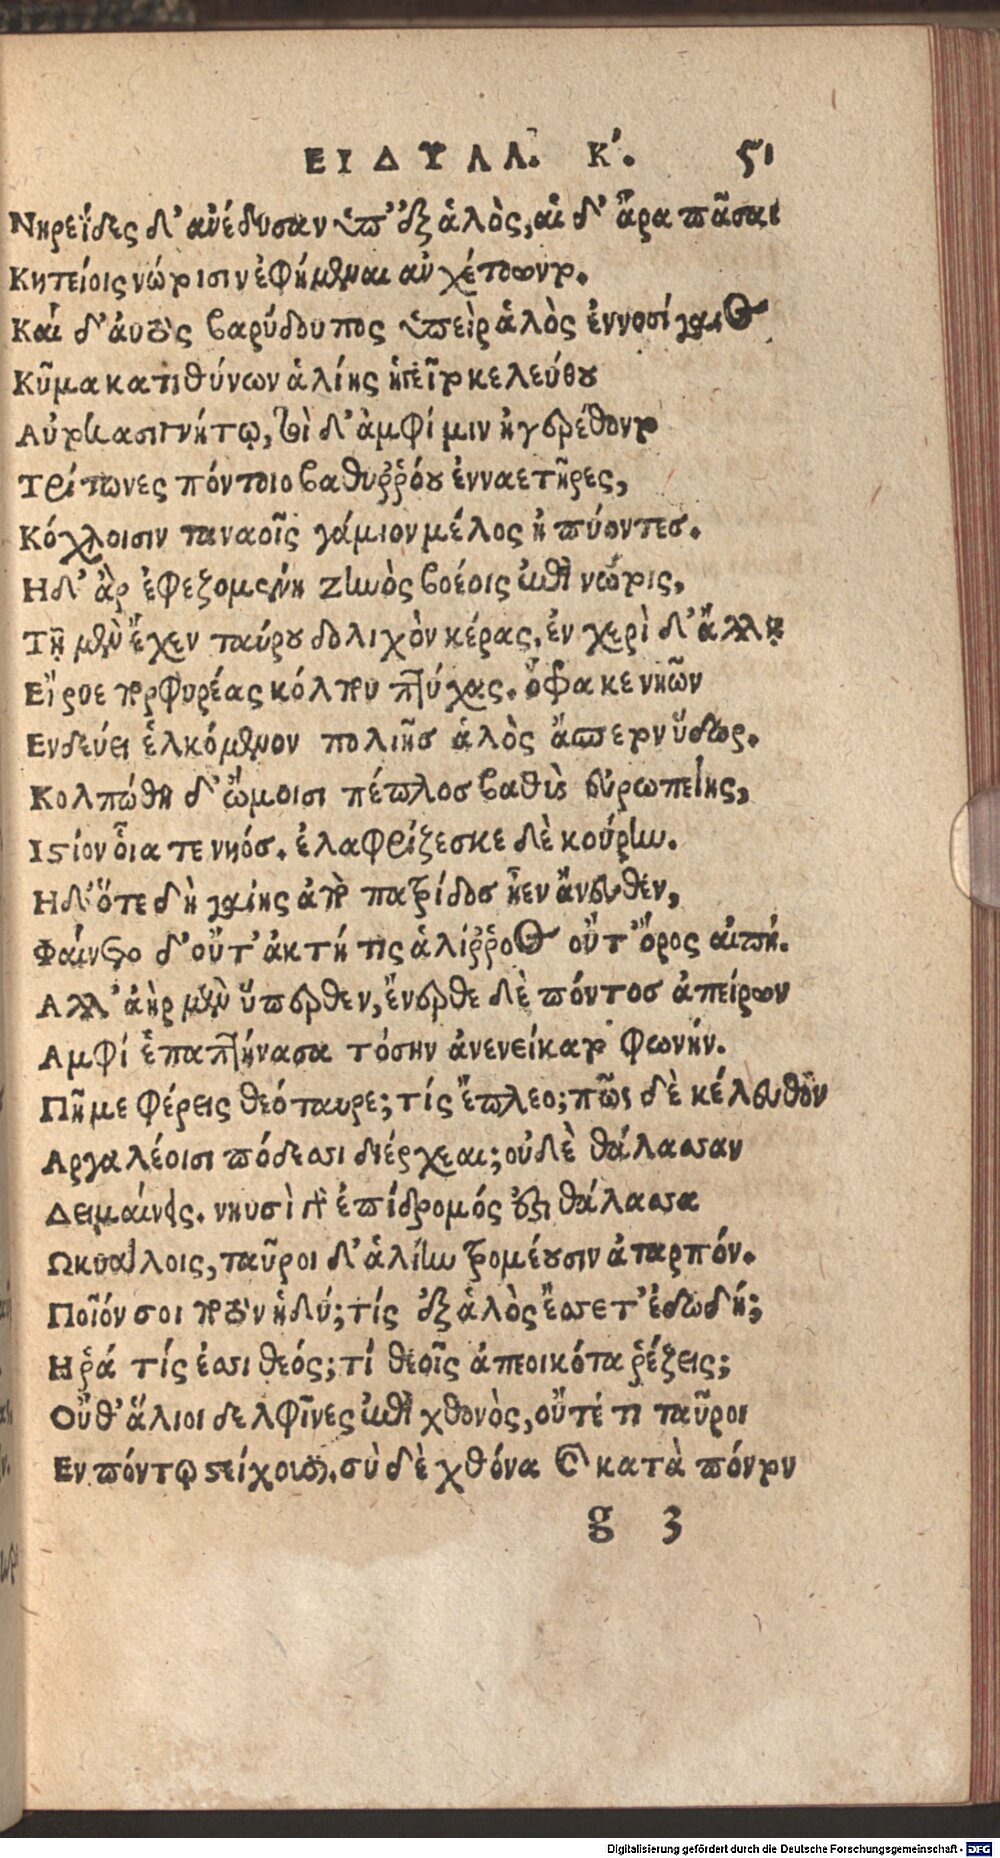 ΕΙΔΥΛΛ. Κ'. 51
Νηρεΐδες δ' ἀνέδυσαν ὑπ' ἐξ ἁλὸς, αἱ δ' ἄρα πᾶσαι
Κητείοις νώτοισιν ἐφήμεναι αὐχέτοωντο.
Καὶ δ' ἀυτὸς βαρύδουπος ὑπεὶρ ἁλὸς ἐννοσίγαιος
Κῦμα κατιθύνων ἁλίης ἡγεῖτο κελεύθου
Αὐτοκασιγνήτῳ, τοὶ δ' ἀμφί μιν ἠγερέθοντο
Τρίτωνες πόντοιο βαθυῤῥόου ἐνναετῆρες,
Κόχλοισιν ταναοῖς γάμιον μέλος ἠπύοντεσ.
Η δ' ἂρ ἐφεζομένη ζηνὸς βοέοις ἐπὶ νώτοις,
Τῇ μὲν ἔχεν ταύρου δολιχὸν κέρας, ἐν χερὶ δ' ἄλλῃ
Εἴρυε πορφυρέας κόλπου πτύχας. ὄφρα κε νηῶν
Ενδεύει ἑλκόμενον πολιῆσ ἁλὸς ἄσπετον ὕδωρ.
Κολπώθη δ' ὤμοισι πέπλοσ βαθὺς εὐρωπείης,
Ιστίον οἷα τε νηόσ. ἐλαφρίζεσκε δὲ κούρην.
Η δ' ὅτε δὴ γαίης ἀπὸ πατρίδοσ ἦεν ἄνευθεν,
Φαίνετο δ' οὔτ' ἀκτή τις ἁλίῤῥοθος οὔτ' ὄρος αἰπή.
Αλλ' ἀὴρ μὲν ὕπερθεν, ἔνερθε δὲ πόντοσ ἀπείρων
Αμφί ἑπαπτήνασα τόσην ἀνενείκατο φωνήν.
Πῆ με φέρεις θεόταυρε; τίς ἔπλεο; πῶς δὲ κέλευθον
Αργαλέοισι πόδεσσι διέρχεαι; οὐδὲ θάλασσαν
Δειμαίνεις. νηυσὶ γὰρ ἐπίδρομός ἐστι θάλασσα
Ωκυάλοις, ταῦροι δ' ἁλίην τρομέουσιν ἀταρπόν.
Ποῖόν σοι ποτὸν ἡδύ; τίς ἐξ ἁλὸς ἔσσετ' ἐδωδή;
Η ῥά τίς ἐσσι θεός; τί θεοῖς ἀπεοικότα ῥέζεις;
Οὔθ' ἅλιοι δελφῖνες ἐπὶ χθονὸς, οὔτέ τι ταῦροι
Εν πόντῳ στείχουσι. σὺ δὲ χθόνα καὶ κατὰ πόντον
g 3
Digitalisierung gefördert durch die Deutsche Forschungsgemeinschaft - DFG